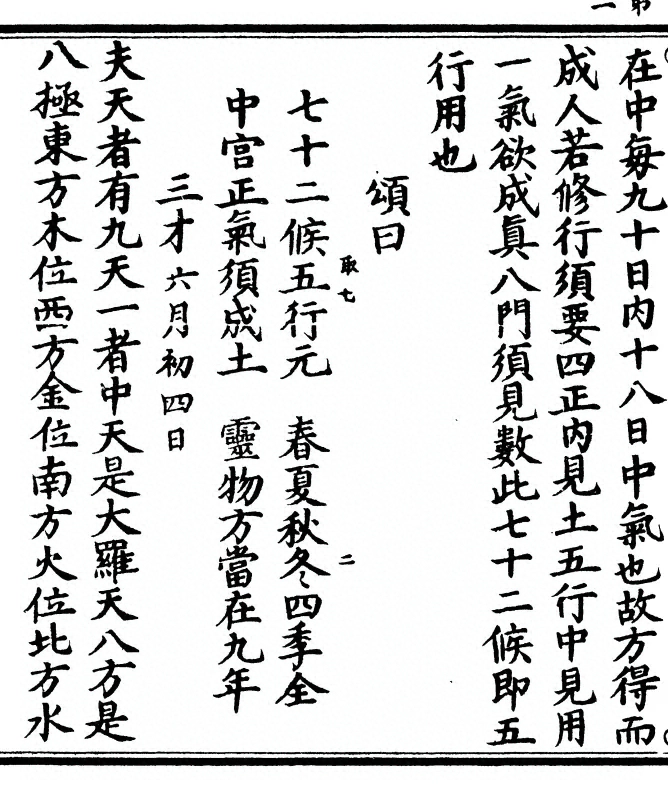 在中每九十日内十八日中氣也故方得而
成人若修行須要四正内見土五行中見用
一氣欲成眞八門須見數此七十二候即五
行用也
頌曰
七十二候五行元　春夏秋冬四季全
取七
二
中宫正氣須成土　靈物方當在九年
三才六月初四日
夫天者有九天一者中天是大羅天八方是
八極東方木位西方金位南方火位北方水